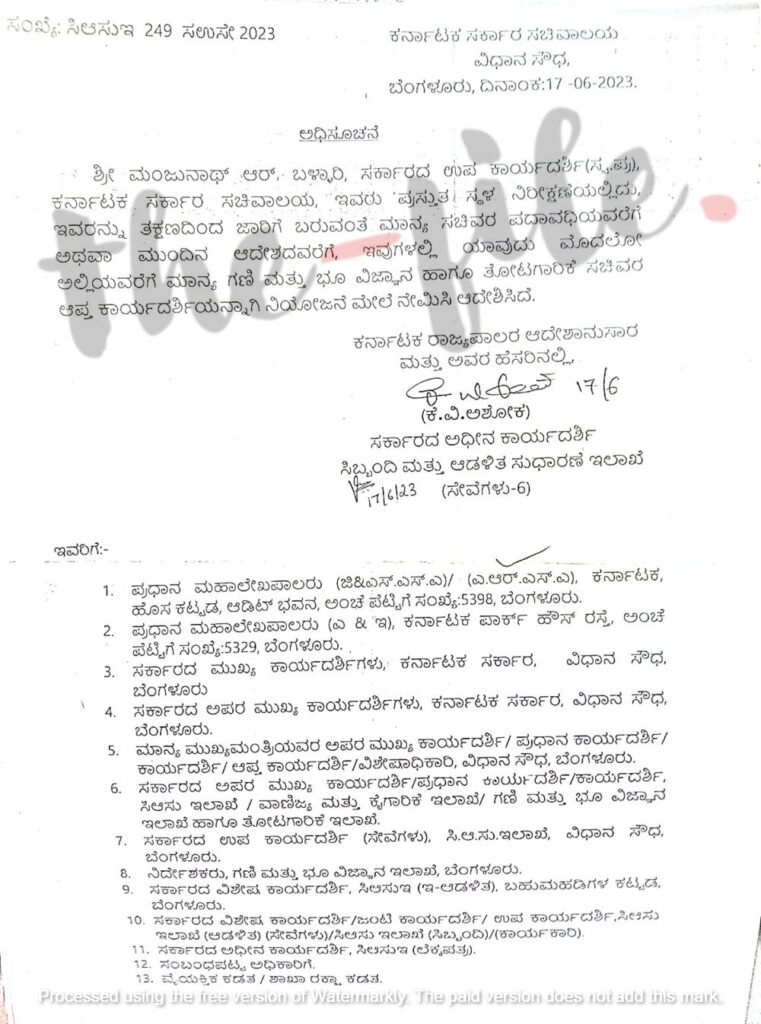 ಸಂಖ್ಯೆ: ಸಿಆಸುಇ 249 ಸಉಸೇ 2023
ಕರ್ನಾಟಕ ಸರ್ಕಾರ ಸಚಿವಾಲಯ
ವಿಧಾನ ಸೌಧ,
ಬೆಂಗಳೂರು, ದಿನಾಂಕ:17 -06-2023.
ಅಧಿಸೂಚನೆ
ಶ್ರೀ ಮಂಜುನಾಥ್ ಆರ್. ಬಳ್ಳಾರಿ, ಸರ್ಕಾರದ ಉಪ ಕಾರ್ಯದರ್ಶಿ(ಸ್ವ.ಪ್ರ),
ಕರ್ನಾಟಕ ಸರ್ಕಾರ ಸಚಿವಾಲಯ, ಇವರು ಪ್ರಸ್ತುತ ಸ್ಥಳ ನಿರೀಕ್ಷಣೆಯಲ್ಲಿದ್ದು,
ಇವರನ್ನು ತಕ್ಷಣದಿಂದ ಜಾರಿಗೆ ಬರುವಂತೆ ಮಾನ್ಯ ಸಚಿವರ ಪದಾವಧಿಯವರೆಗೆ
ಅಥವಾ ಮುಂದಿನ ಆದೇಶದವರೆಗೆ, ಇವುಗಳಲ್ಲಿ ಯಾವುದು ಮೊದಲೋ
ಅಲ್ಲಿಯವರೆಗೆ ಮಾನ್ಯ ಗಣಿ ಮತ್ತು ಭೂ ವಿಜ್ಞಾನ ಹಾಗೂ ತೋಟಗಾರಿಕೆ ಸಚಿವರ
ಆಪ್ತ ಕಾರ್ಯದರ್ಶಿಯನ್ನಾಗಿ ನಿಯೋಜನೆ ಮೇಲೆ ನೇಮಿಸಿ ಆದೇಶಿಸಿದೆ.
the-file.
ಕರ್ನಾಟಕ ರಾಜ್ಯಪಾಲರ ಆದೇಶಾನುಸಾರ
ಮತ್ತು ಅವರ ಹೆಸರಿನಲ್ಲಿ,
17/6
(ಕೆ.ವಿ.ಅಶೋಕ)
ಸರ್ಕಾರದ ಅಧೀನ ಕಾರ್ಯದರ್ಶಿ
ಸಿಬ್ಬಂದಿ ಮತ್ತು ಆಡಳಿತ ಸುಧಾರಣೆ ಇಲಾಖೆ
17/6/23 (ಸೇವೆಗಳು-6)
ಇವರಿಗೆ:-
1. ಪ್ರಧಾನ ಮಹಾಲೇಖಪಾಲರು (ಜಿ&ಎಸ್.ಎಸ್.ಎ)/ (ಎ.ಆರ್.ಎಸ್.ಎ), ಕರ್ನಾಟಕ,
ಹೊಸ ಕಟ್ಟಡ, ಆಡಿಟ್ ಭವನ, ಅಂಚೆ ಪೆಟ್ಟಿಗೆ ಸಂಖ್ಯೆ:5398, ಬೆಂಗಳೂರು.
2. ಪ್ರಧಾನ ಮಹಾಲೇಖಪಾಲರು (ಎ & ಇ), ಕರ್ನಾಟಕ ಪಾರ್ಕ್ ಹೌಸ್ ರಸ್ತೆ, ಅಂಚೆ
ಪೆಟ್ಟಿಗೆ ಸಂಖ್ಯೆ:5329, ಬೆಂಗಳೂರು.
3. ಸರ್ಕಾರದ ಮುಖ್ಯ ಕಾರ್ಯದರ್ಶಿಗಳು, ಕರ್ನಾಟಕ ಸರ್ಕಾರ, ವಿಧಾನ ಸೌಧ,
ಬೆಂಗಳೂರು
4. ಸರ್ಕಾರದ ಅಪರ ಮುಖ್ಯ ಕಾರ್ಯದರ್ಶಿಗಳು, ಕರ್ನಾಟಕ ಸರ್ಕಾರ, ವಿಧಾನ ಸೌಧ,
ಬೆಂಗಳೂರು.
5. ಮಾನ್ಯ ಮುಖ್ಯಮಂತ್ರಿಯವರ ಅಪರ ಮುಖ್ಯ ಕಾರ್ಯದರ್ಶಿ/ ಪ್ರಧಾನ ಕಾರ್ಯದರ್ಶಿ/
ಕಾರ್ಯದರ್ಶಿ/ ಆಪ್ತ ಕಾರ್ಯದರ್ಶಿ/ವಿಶೇಷಾಧಿಕಾರಿ, ವಿಧಾನ ಸೌಧ, ಬೆಂಗಳೂರು.
6. ಸರ್ಕಾರದ ಅಪರ ಮುಖ್ಯ ಕಾರ್ಯದರ್ಶಿ/ಪ್ರಧಾನ ಕಾರ್ಯದರ್ಶಿ/ಕಾರ್ಯದರ್ಶಿ,
ಸಿಆಸು ಇಲಾಖೆ / ವಾಣಿಜ್ಯ ಮತ್ತು ಕೈಗಾರಿಕೆ ಇಲಾಖೆ/ ಗಣಿ ಮತ್ತು ಭೂ ವಿಜ್ಞಾನ
ಇಲಾಖೆ ಹಾಗೂ ತೋಟಗಾರಿಕೆ ಇಲಾಖೆ.
7. ಸರ್ಕಾರದ ಉಪ ಕಾರ್ಯದರ್ಶಿ (ಸೇವೆಗಳು), ಸಿ.ಆ.ಸು.ಇಲಾಖೆ, ವಿಧಾನ ಸೌಧ,
ಬೆಂಗಳೂರು.
8. ನಿರ್ದೇಶಕರು, ಗಣಿ ಮತ್ತು ಭೂ ವಿಜ್ಞಾನ ಇಲಾಖೆ, ಬೆಂಗಳೂರು.
9. ಸರ್ಕಾರದ ವಿಶೇಷ ಕಾರ್ಯದರ್ಶಿ, ಸಿಆಸುಇ (ಇ-ಆಡಳಿತ), ಬಹುಮಹಡಿಗಳ ಕಟ್ಟಡ,
ಬೆಂಗಳೂರು.
10. ಸರ್ಕಾರದ ವಿಶೇಷ ಕಾರ್ಯದರ್ಶಿ/ಜಂಟಿ ಕಾರ್ಯದರ್ಶಿ/ ಉಪ ಕಾರ್ಯದರ್ಶಿ,ಸಿಆಸು
ಇಲಾಖೆ (ಆಡಳಿತ) (ಸೇವೆಗಳು)/ಸಿಆಸು ಇಲಾಖೆ (ಸಿಬ್ಬಂದಿ)/(ಕಾರ್ಯಕಾರಿ).
11. ಸರ್ಕಾರದ ಅಧೀನ ಕಾರ್ಯದರ್ಶಿ, ಸಿಆಸುಇ (ಲೆಕ್ಕಪತ್ರ).
12. ಸಂಬಂಧಪಟ್ಟ ಅಧಿಕಾರಿಗೆ.
13. ವೈಯಕ್ತಿಕ ಕಡತ / ಶಾಖಾ ರಕ್ಷಾ ಕಡತ.
Processed using the free version of Watermarkly. The paid version does not add this mark.